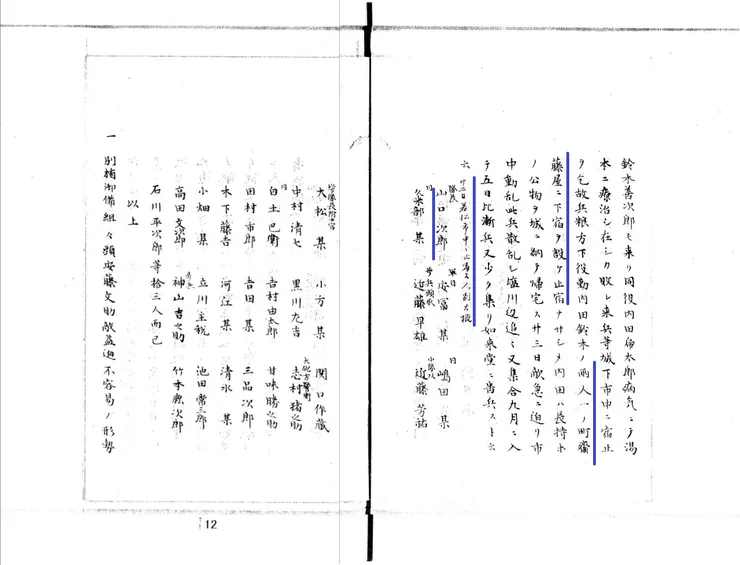 鈴木善次郎モ来リ同役内田伝太郎病気ニテ湯
本ニ療治シ在シカ敗レ来兵等城下市中ニ宿止
ヲ乞故兵粮方下役勤内田鈴木ノ両人一ノ町齋
藤屋ニ下宿ヲ設ケ止宿ナサシメ内田ハ長持ホ
ノ公物ヲ城ニ納テ帰宅ス廿三日敵急ニ迫リ市
中動乱此兵散乱シ塩川辺迄ニ又集合九月ニ入
テ五日比漸兵又少々集リ如来堂ニ当兵ストニ
六廿二日若松市中ニ止宿ス人別大抵
隊長
山口次郎
軍目
安冨某
同
嶋田某
同
久米部某
歩兵頭取
近藤早雄
小隊头
近藤芳祐
大松某
小方某
関口作蔵
中村清七
黒川左吉
志村猪之助
同
白土巴衛
吉村由太郎
甘味勝之助
田村市郎
吉田某
三品次郎
木下藤吉
河江某
清水某
小畑某
立川主税
池田常三郎
高田文次郎
神山吉之助
竹本磨次郎
石川平次郎等拾三人而已
以上
一別楠御備組々頭安藤文助敵益迫不容易ノ形勢
12